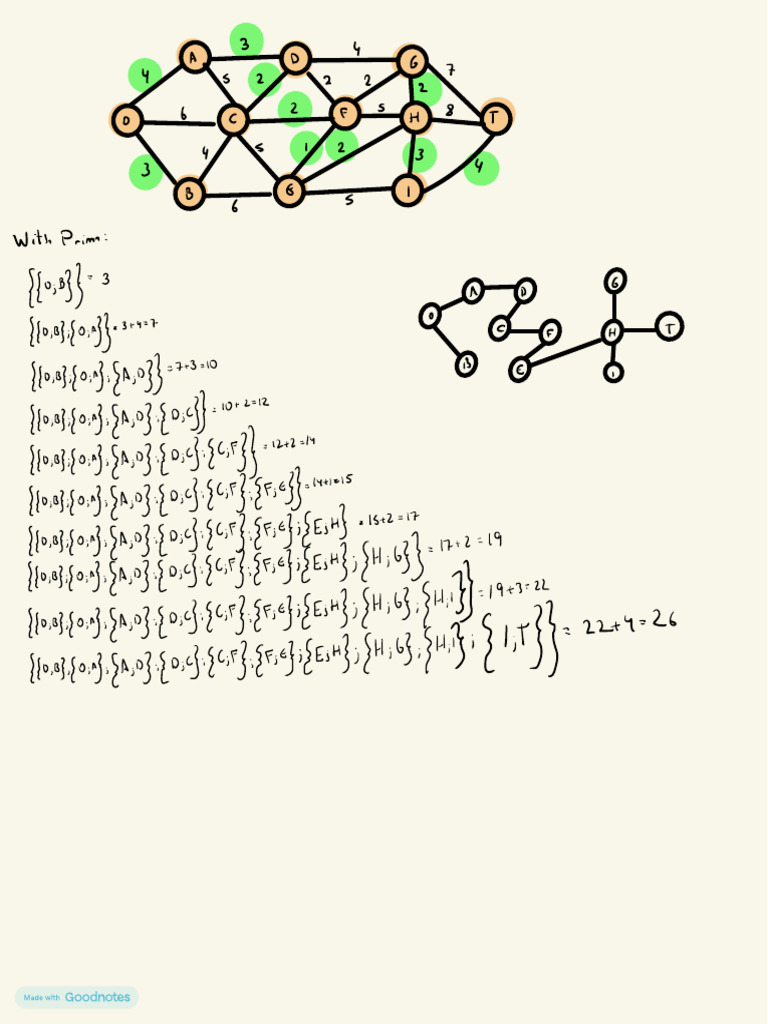 3
4
A
D
G
4
5
2
2
2
2
7
O
6
C
2
F
5
H
8
T
3
4
5
1
2
3
4
B
6
E
5
I
With Prim:
{{O,B}} = 3
{{O,B};{O;A}} = 3+4=7
{{O,B};{O;A};{A,D}} = 7+3=10
{{O,B};{O;A};{A,D};{D;C}} = 10+2=12
{{O,B};{O;A};{A,D};{D;C};{C;F}} = 12+2=14
{{O,B};{O;A};{A,D};{D;C};{C;F};{F;E}} = 14+1=15
{{O,B};{O;A};{A,D};{D;C};{C;F};{F;E};{E;H} = 15+2=17
{{O,B};{O;A};{A,D};{D;C};{C;F};{F;E};{E;H};{H;G}} = 17+2=19
{{O,B};{O;A};{A,D};{D;C};{C;F};{F;E};{E;H};{H;G};{H;I}} = 19+3=22
{{O,B};{O;A};{A,D};{D;C};{C;F};{F;E};{E;H};{H;G};{H;I};{I,T}} = 22+4=26
A
D
G
O
C
F
H
T
B
E
I
Made with Goodnotes